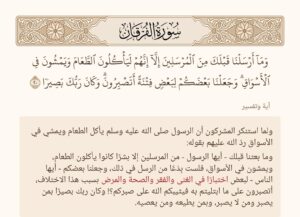 سُورَةُ الفُرقَانِ
وَمَآ أَرۡسَلۡنَا قَبۡلَكَ مِنَ ٱلۡمُرۡسَلِينَ إِلَّآ إِنَّهُمۡ لَيَأۡكُلُونَ ٱلطَّعَامَ وَيَمۡشُونَ فِي
ٱلۡأَسۡوَاقِۗ وَجَعَلۡنَا بَعۡضَكُمۡ لِبَعۡضٖ فِتۡنَةً أَتَصۡبِرُونَۗ وَكَانَ رَبُّكَ بَصِيرٗا ٢٠
آية وتفسير
ولما استنكر المشركون أن الرسول صلى الله عليه وسلم يأكل الطعام ويمشي في
الأسواق ردّ الله عليهم بقوله:
وما بعثنا قبلك - أيها الرسول - من المرسلين إلا بشرًا كانوا يأكلون الطعام،
ويمشون في الأسواق، فلست بدعًا من الرسل في ذلك، وجعلنا بعضكم - أيها
الناس - لبعض اختبارًا في الغنى والفقر والصحة والمرض بسبب هذا الاختلاف،
أتصبرون على ما ابتليتم به فيثيبكم الله على صبركم؟! وكان ربك بصيرًا بمن
يصبر ومن لا يصبر، وبمن يطيعه ومن يعصيه.